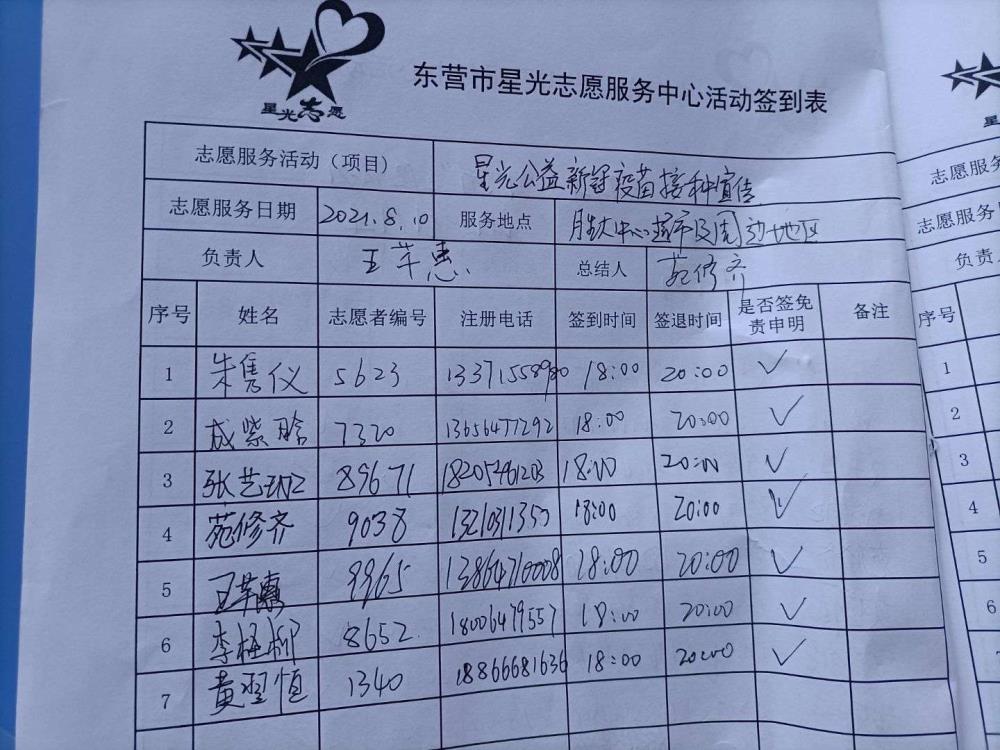 星光志愿
东营市星光志愿服务中心活动签到表
志愿服务活动（项目） 星光公益新冠疫苗接种宣传
志愿服务日期 2021.8.10 服务地点 胜大中心超市及周边地区
负责人 王苹惠 总结人 苑修齐
序号 姓名 志愿者编号 注册电话 签到时间 签退时间 是否签免责申明 备注
1 朱隽仪 5623 18:00 20:00 ✓
2 成紫晗 7320 13656477292 18:00 20:00 ✓
3 张艺 89671 18205461203 18:00 20:00 ✓
4 苑修齐 9038 18:00 20:00 ✓
5 王苹惠 9965 13864710008 18:00 20:00 ✓
6 李梅柳 8652 18006479557 18:00 20:00 ✓
7 黄翌恒 1340 18866681636 18:00 20:00 ✓
志愿服务
志愿服务
负责
序号
1
2
3
4
5
6